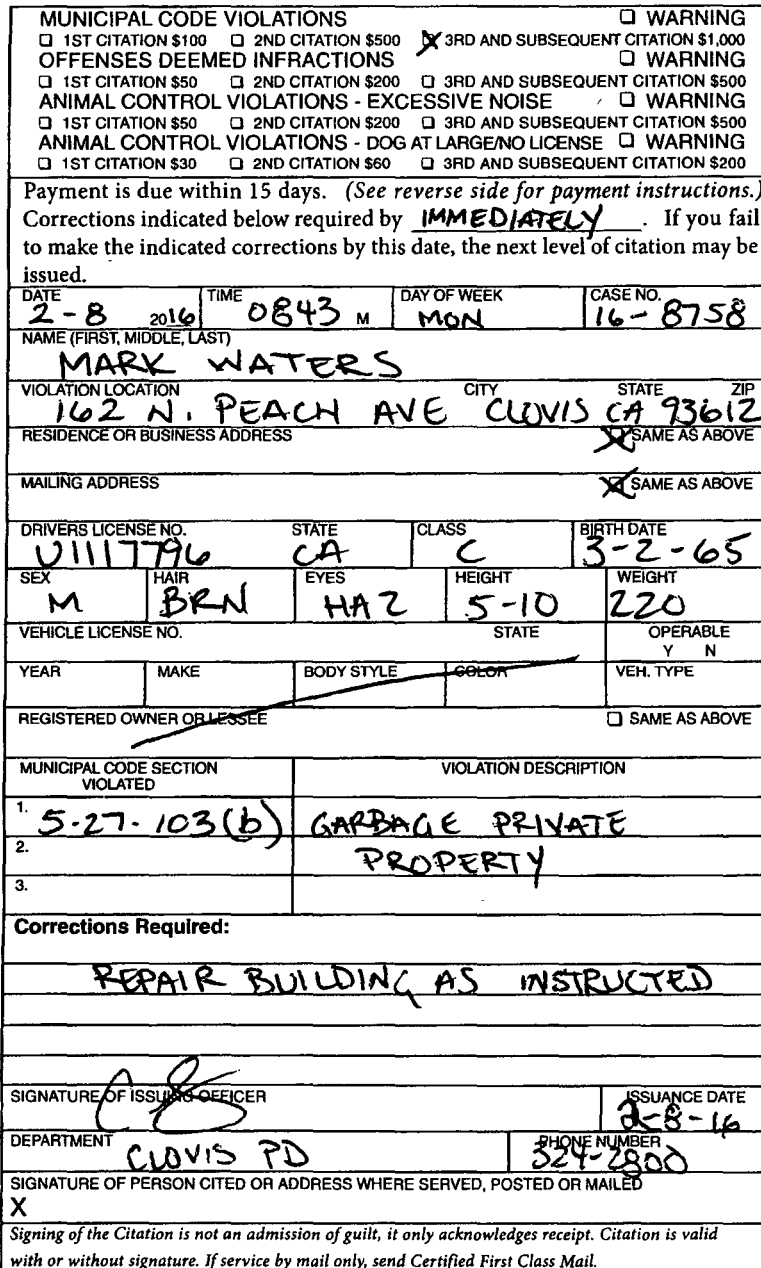 MUNICIPAL CODE VIOLATIONS ☐ WARNING
☐ 1ST CITATION $100 ☐ 2ND CITATION $500 ☒ 3RD AND SUBSEQUENT CITATION $1,000
OFFENSES DEEMED INFRACTIONS ☐ WARNING
☐ 1ST CITATION $50 ☐ 2ND CITATION $200 ☐ 3RD AND SUBSEQUENT CITATION $500
ANIMAL CONTROL VIOLATIONS - EXCESSIVE NOISE ☐ WARNING
☐ 1ST CITATION $50 ☐ 2ND CITATION $200 ☐ 3RD AND SUBSEQUENT CITATION $500
ANIMAL CONTROL VIOLATIONS - DOG AT LARGE/NO LICENSE ☐ WARNING
☐ 1ST CITATION $30 ☐ 2ND CITATION $60 ☐ 3RD AND SUBSEQUENT CITATION $200
Payment is due within 15 days. (See reverse side for payment instructions.)
Corrections indicated below required by IMMEDIATELY. If you fail
to make the indicated corrections by this date, the next level of citation may be
issued.
DATE TIME DAY OF WEEK CASE NO.
2-8 2016 0843 M MON 16-8758
NAME (FIRST, MIDDLE, LAST)
MARK WATERS
VIOLATION LOCATION CITY STATE ZIP
162 N. PEACH AVE CLOVIS CA 93612
RESIDENCE OR BUSINESS ADDRESS ☒ SAME AS ABOVE
MAILING ADDRESS ☒ SAME AS ABOVE
DRIVERS LICENSE NO. STATE CLASS BIRTH DATE
U1117796 CA C 3-2-65
SEX HAIR EYES HEIGHT WEIGHT
M BRN HAZ 5-10 220
VEHICLE LICENSE NO. STATE OPERABLE
Y N
YEAR MAKE BODY STYLE COLOR VEH. TYPE
REGISTERED OWNER OR LESSEE ☐ SAME AS ABOVE
MUNICIPAL CODE SECTION VIOLATION DESCRIPTION
VIOLATED
1. 5-27-103(b) GARBAGE PRIVATE
2. PROPERTY
3.
Corrections Required:
REPAIR BUILDING AS INSTRUCTED
SIGNATURE OF ISSUING OFFICER ISSUANCE DATE
2-8-16
DEPARTMENT PHONE NUMBER
CLOVIS PD 324-2800
SIGNATURE OF PERSON CITED OR ADDRESS WHERE SERVED, POSTED OR MAILED
X
Signing of the Citation is not an admission of guilt, it only acknowledges receipt. Citation is valid
with or without signature. If service by mail only, send Certified First Class Mail.